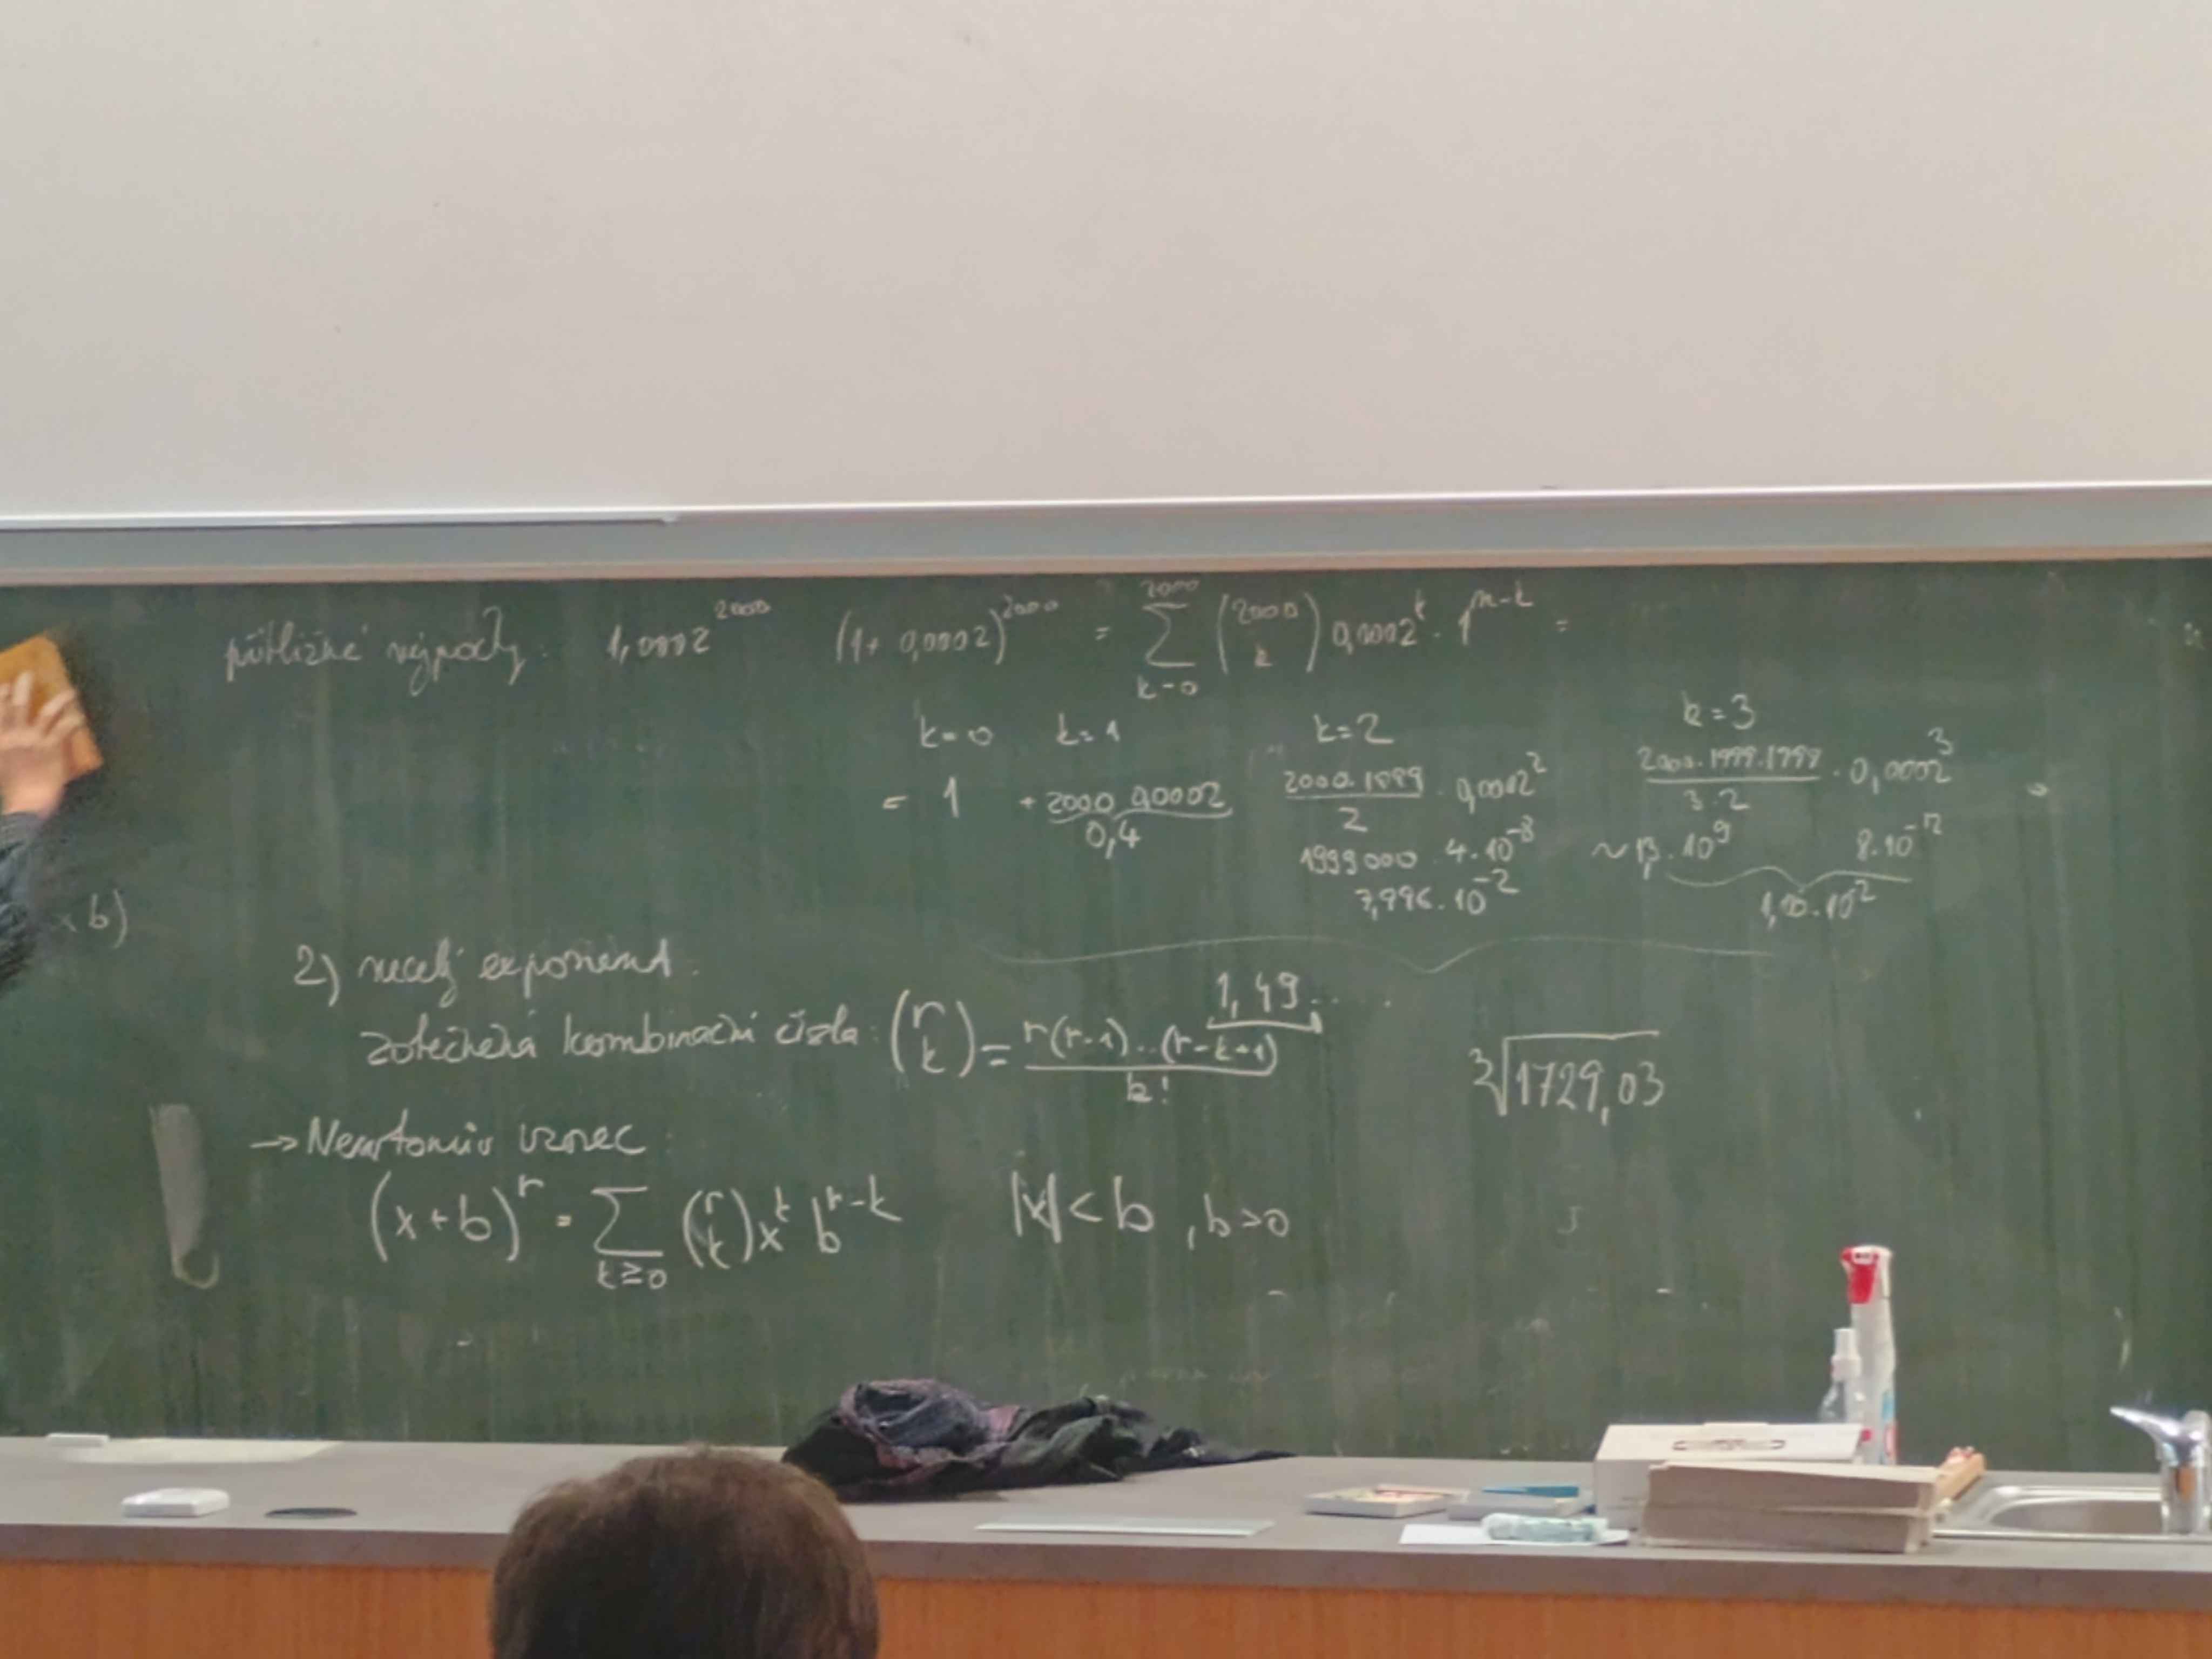 přibližné výpočty: 1,0002^2000 (1+ 0,0002)^2000 = ∑_{k=0}^{2000} (2000 k) 0,0002^k · 1^{n-k} =
k=0 k=1 k=2 k=3
= 1 + 2000 0,0002 2000·1999/2 · 0,0002^2 2000·1999·1998/3·2 · 0,0002^3
0,4 1999000 · 4·10^-8 ~ · 10^9 8·10^-12
7,996·10^-2 · 10^-2
x b)
2) necelý exponent.
1,49...
zobecněná kombinační čísla: (r k) = r(r-1)..(r-k+1)/k! ∛1729,03
→ Newtonův vzorec:
(x+b)^r = ∑_{k≥0} (r k) x^k b^{r-k} |x|<b , b>0